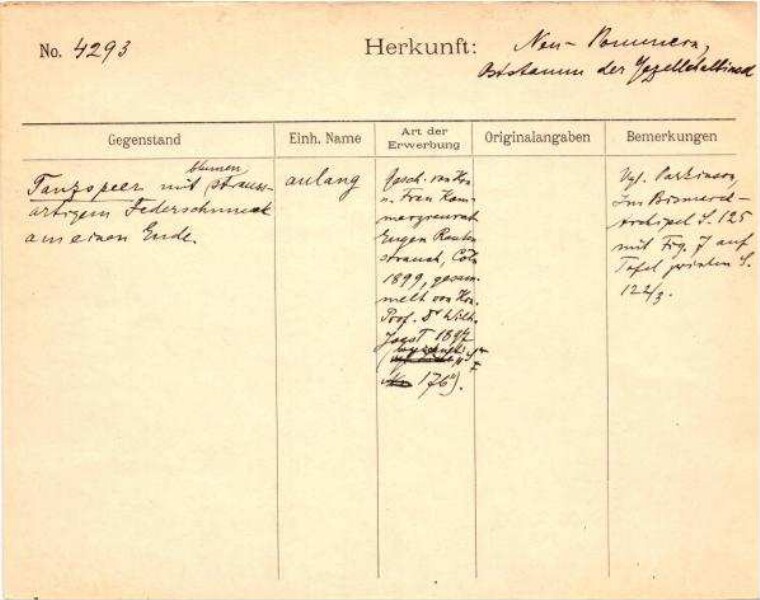 No. 4293
Herkunft: Neu-Pommern,
Oststamm der Gazellehalbinsel
Gegenstand
Einh. Name
Art der Erwerbung
Originalangaben
Bemerkungen
Tanzspeer mit blumenstrauss-
artigem Federschmuck
am einen Ende.
aulang
Gesch. von Hrn
u. Frau Kom-
merzienrat
Eugen Rauten
strauch, Cöln
1899, gesam-
melt von Hrn.
Prof. Dr Wilh.
Joest 1897
176").
Vgl. Parkinson,
Im Bismarck-
Archipel S. 125
mit Fig. 7 auf
Tafel zwischen S.
122/3.